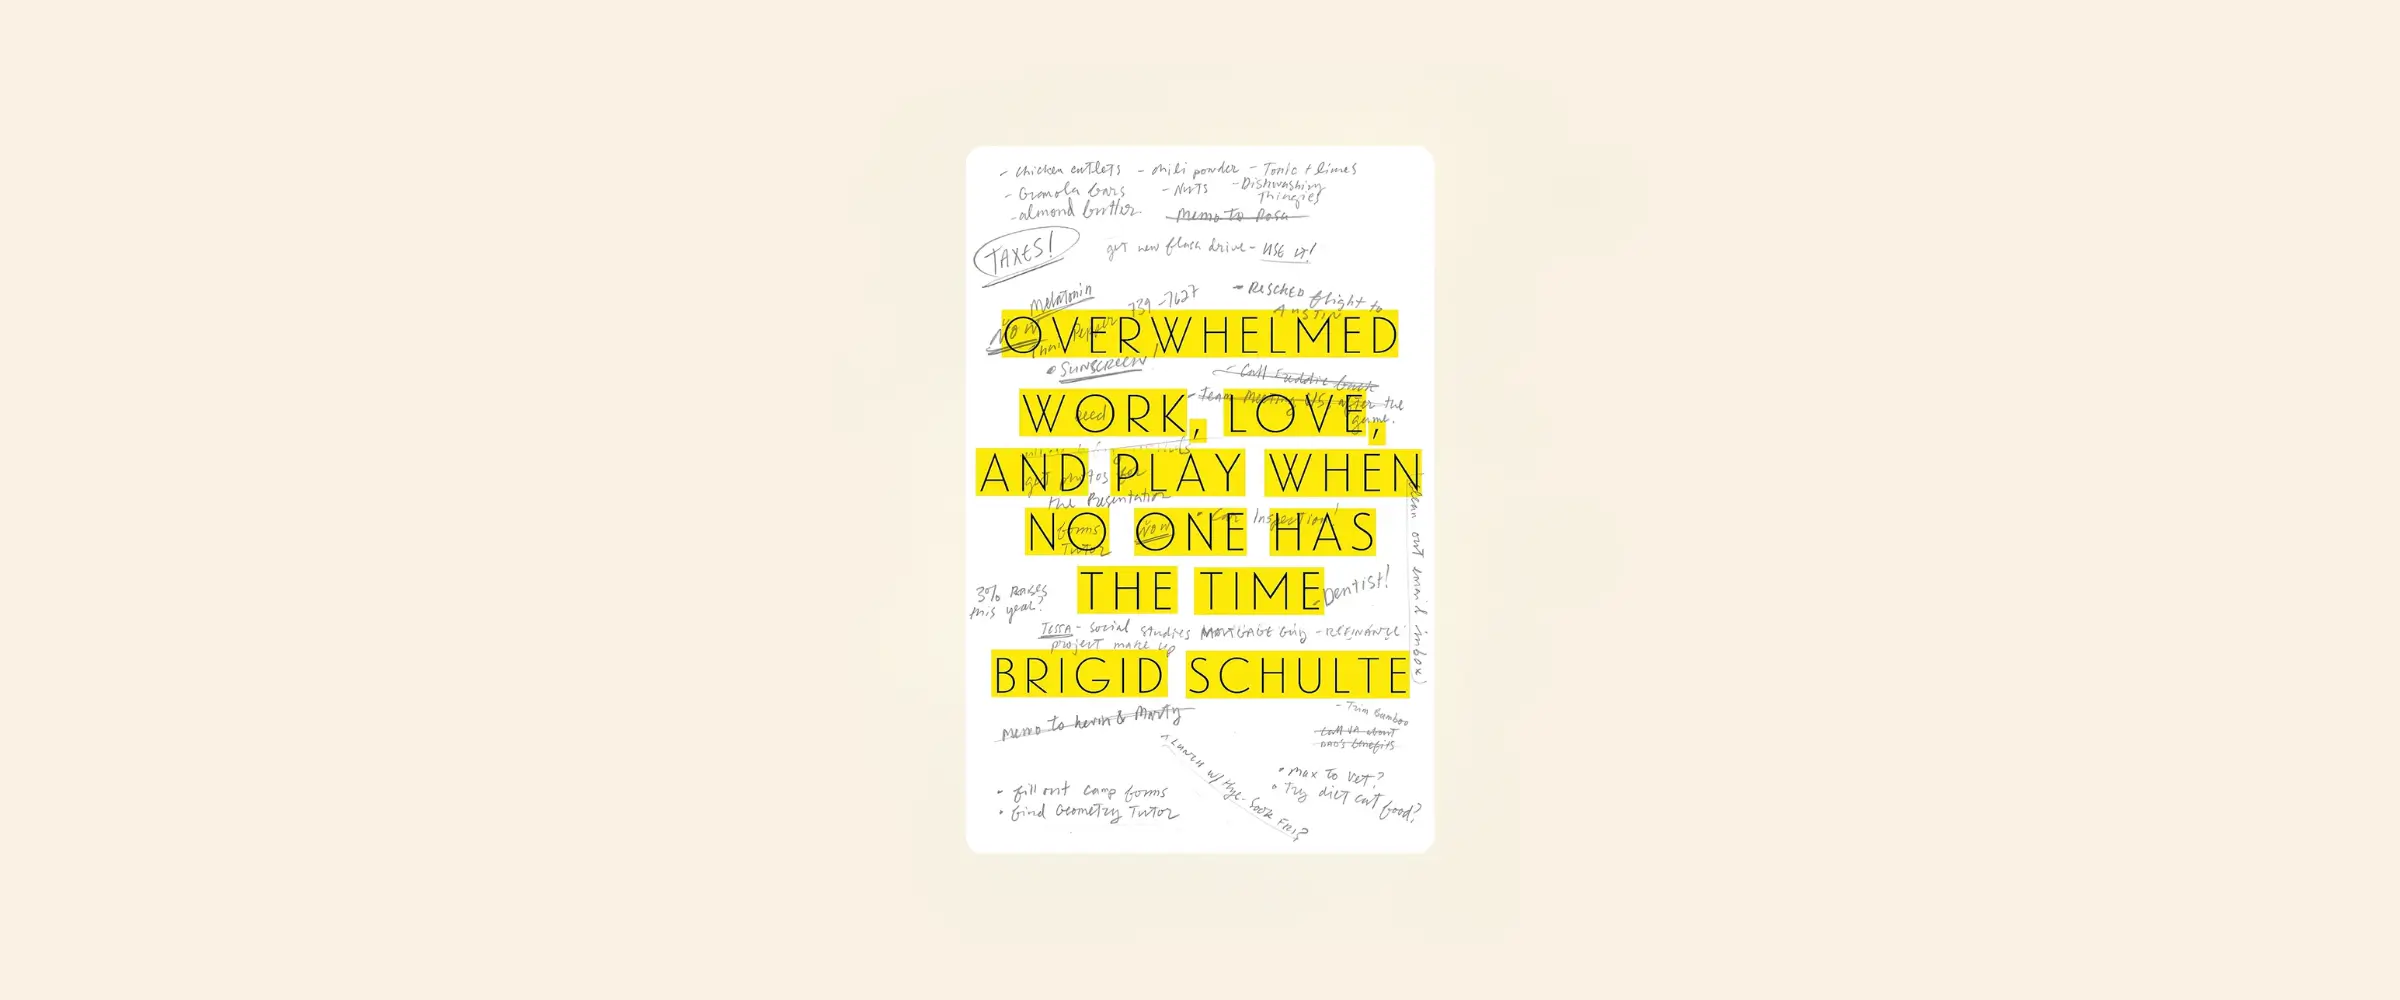 - chicken cutlets - chili powder - Tonic + limes
- Granola bars - Nuts - Dishwashing
Thingies
- almond butter
Memo to Rosa
TAXES!
get new flash drive - USE IT!
Melatonin
739-7627
- RESCHED flight to
AUSTIN
NOW
Thai Pepper
OVERWHELMED
• SUNSCREEN!
- Call Freddie back
- Team Meeting after the
game.
need
WORK, LOVE,
get photos for
AND PLAY WHEN
the Presentation
• Car Inspection!
forms
NOW
NO ONE HAS
Tutor
THE TIME
- Dentist!
3% Raises
this year?
clean out email inbox
TESSA - Social Studies
project make up
MORTGAGE Guy - REFINANCE
BRIGID SCHULTE
memo to Kevin & Marty
- Trim Bamboo
Call VA about
DAD'S benefits
LUNCH w/
• Max to vet?
• Try diet cat food?
• fill out camp forms
• find Geometry Tutor